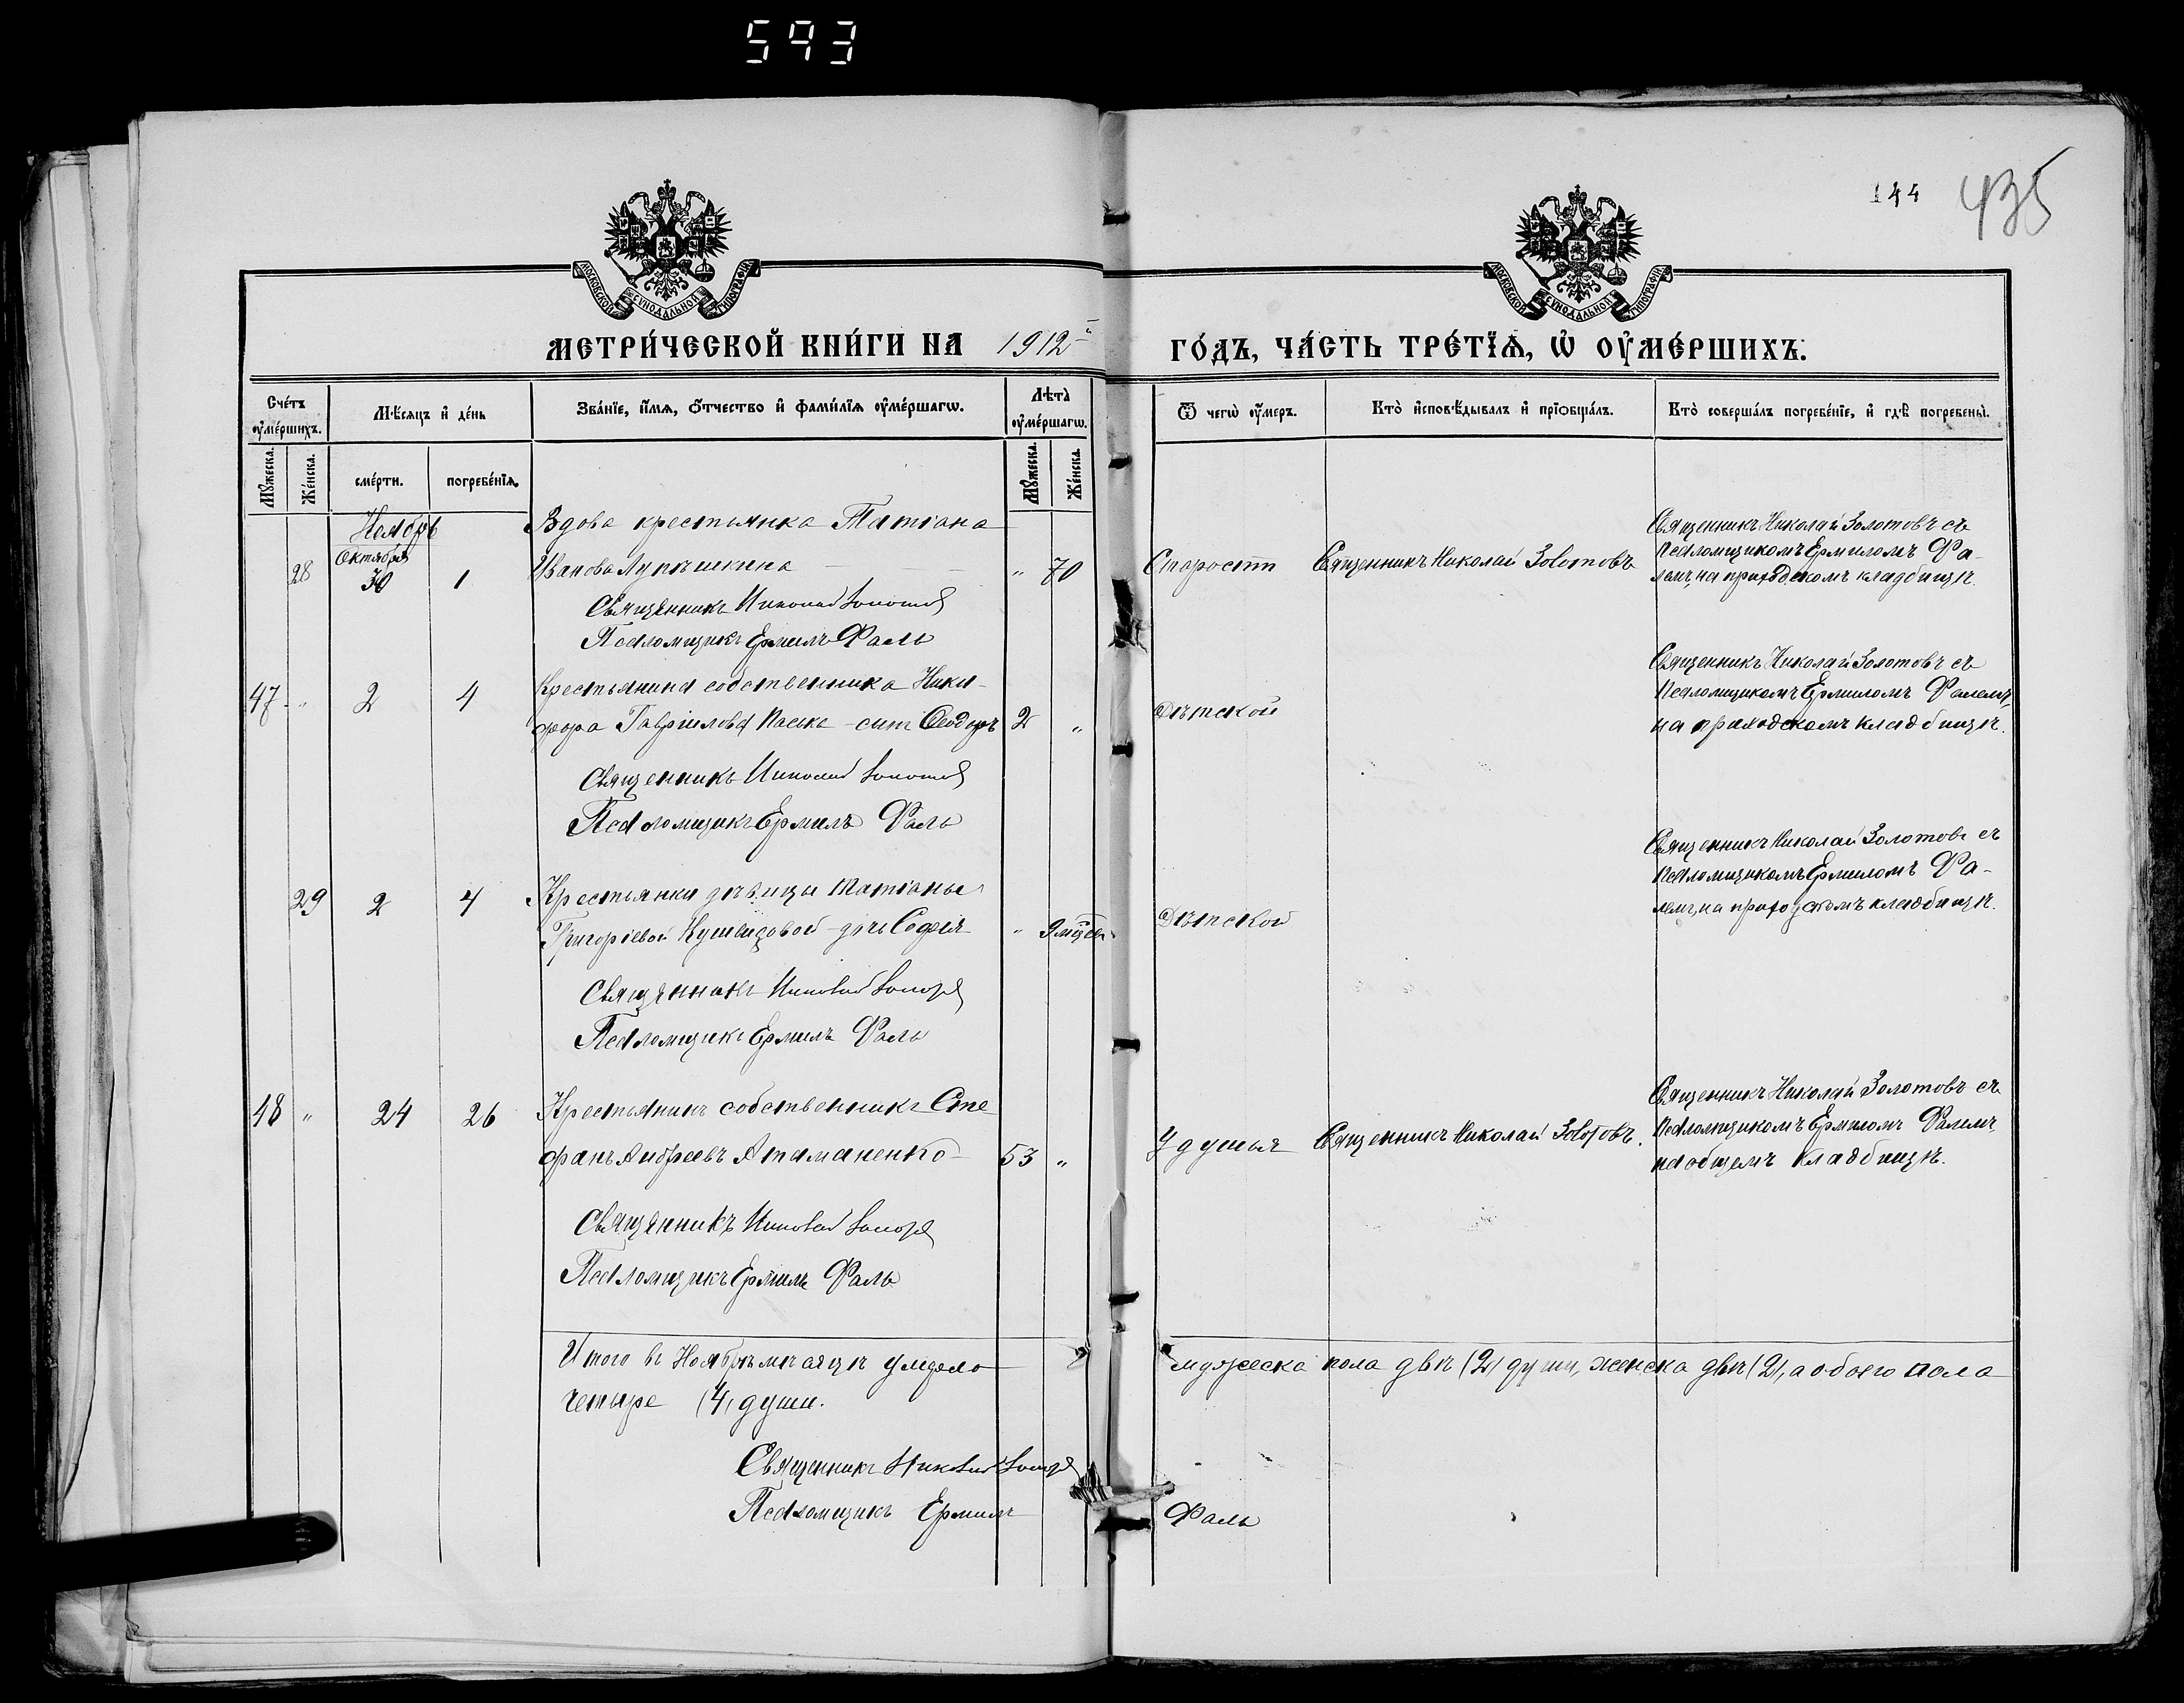 593
144 435
МОСКОВСКОЙ СѴНОДАЛЬНОЙ ТИПОГРАФІИ
МОСКОВСКОЙ СѴНОДАЛЬНОЙ ТИПОГРАФІИ
МЕТРИ́ЧЕСКОЙ КНИ́ГИ НА 1912 й ГО́ДЪ, ЧА́СТЬ ТРЕ́ТЇѦ, Ѡ҆ ОУ҆МЕ́РШИХЪ.
Сче́тъ оу҆ме́ршихъ.
Мѣ́сяцъ и҆ де́нь
Зва́нїе, и҆́мѧ, ѻ҆́тчество и҆ фами́лїѧ оу҆ме́ршагѡ.
Лѣ́та оу҆ме́ршагѡ.
Ѿ чегѡ̀ оу҆́меръ.
Кто̀ и҆сповѣ́дывалъ и҆ прїѡбща́лъ.
Кто̀ соверша́лъ погребе́нїе, и҆ гдѣ̀ погребены̀.
Мꙋ́жеска. Же́нска. сме́рти. погребе́нїѧ. Мꙋ́жеска. Же́нска.
Ноябрь
28 Октября 30 1
Вдова крестьянка Татіана
Иванова
Священникъ Николай Золотовъ
Псаломщикъ Ермилъ Фаль
" 70
Старости
Священникъ Николай Золотовъ
Священникъ Николай Золотовъ съ
Псаломщикомъ Ермиломъ Фа-
лемъ, на приходскомъ кладбищѣ.
47 " 2 4
Крестьянина собственника Ники-
фора Гаврiилова Паська - сынъ Ѳеодоръ 2 "
Священникъ Николай Золотовъ
Псаломщикъ Ермилъ Фаль
Дѣтской
Священникъ Николай Золотовъ съ
Псаломщикомъ Ермиломъ Фалемъ,
на приходскомъ кладбищѣ.
29 2 4
Крестьянки дѣвицы Татіаны
Григоріевой дочь Софія " 9 мѣсяц.
Священникъ Николай Золотовъ
Псаломщикъ Ермилъ Фаль
Дѣтской
Священникъ Николай Золотовъ съ
Псаломщикомъ Ермиломъ Фа-
лемъ, на приходскомъ кладбищѣ.
48 " 24 26
Крестьянинъ собственникъ Сте
фанъ Андреевъ Атаманенко 53 "
Священникъ Николай Золотовъ
Псаломщикъ Ермилъ Фаль
Удушья
Священникъ Николай Золотовъ.
Священникъ Николай Золотовъ съ
Псаломщикомъ Ермиломъ Фалемъ,
на общемъ кладбищѣ.
Итого въ Ноябрѣ мѣсяцѣ умерло мужеска пола двѣ (2) души, женска двѣ (2), а обоего пола
четыре (4) души.
Священникъ Николай Золотовъ
Псаломщикъ Ермилъ Фаль